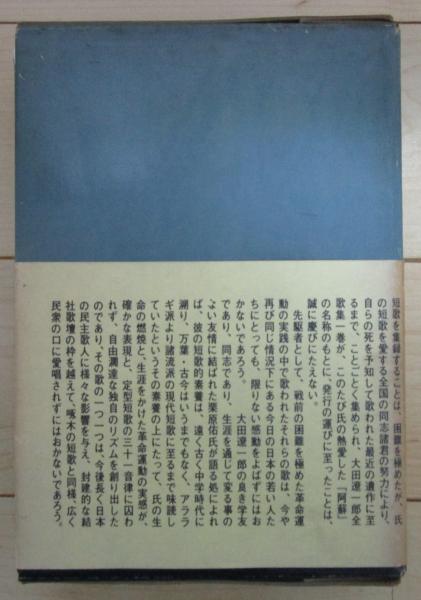 短歌を集録することは、困難を極めたが、氏
の短歌を愛する全国の同志諸君の努力により、
自らの死を予知して歌われた最近の遺作に至
るまで、ことごとく集められ、大田遼一郎全
歌集一巻が、このたび氏の熱愛した『阿蘇』
の名称のもとに、発行の運びに至ったことは、
誠に慶びにたえない。
先駆者として、戦前の困難を極めた革命運
動の実践の中で歌われたそれらの歌は、今や
再び同じ情況下にある今日の日本の若い人た
ちにとっても、限りない感動をよばずにはお
かないであろう。　大田遼一郎の良き学友
であり、同志であり、生涯を通じて変る事の
よい友情に結ばれた栗原佑氏が語る処によれ
ば、彼の短歌的素養は、遠く古く中学時代に
溯り、万葉・古今はいうまでもなく、アララ
ギ派より諸流派の現代短歌に至るまで味読し
ていたというその素養の上にたって、氏の生
命の燃焼と、生涯をかけた革命運動の実感が、
確かな表現と、定型短歌の三十一音律に囚わ
れず、自由濶達な独自のリズムを創り出した
のであり、その歌の一つ一つは、今後長く日本
の民主歌人に様々な影響を与え、封建的な結
社歌壇の枠を越えて、啄木の短歌と同様、広く
民衆の口に愛唱されずにはおかないであろう。